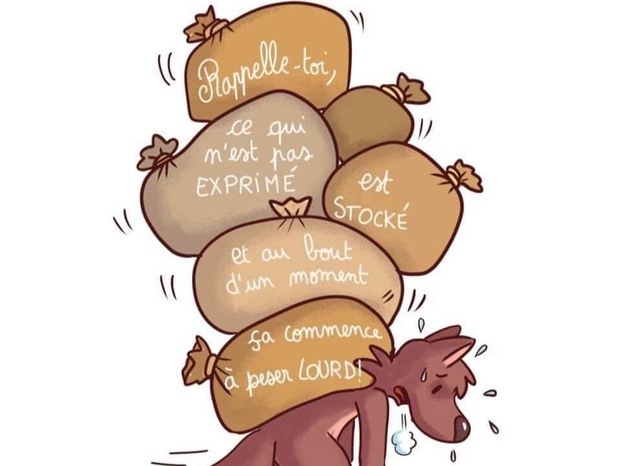 Rappelle-toi,
ce qui
n'est pas
EXPRIMÉ
est
STOCKÉ
et au bout
d'un moment
ça commence
à peser LOURD!